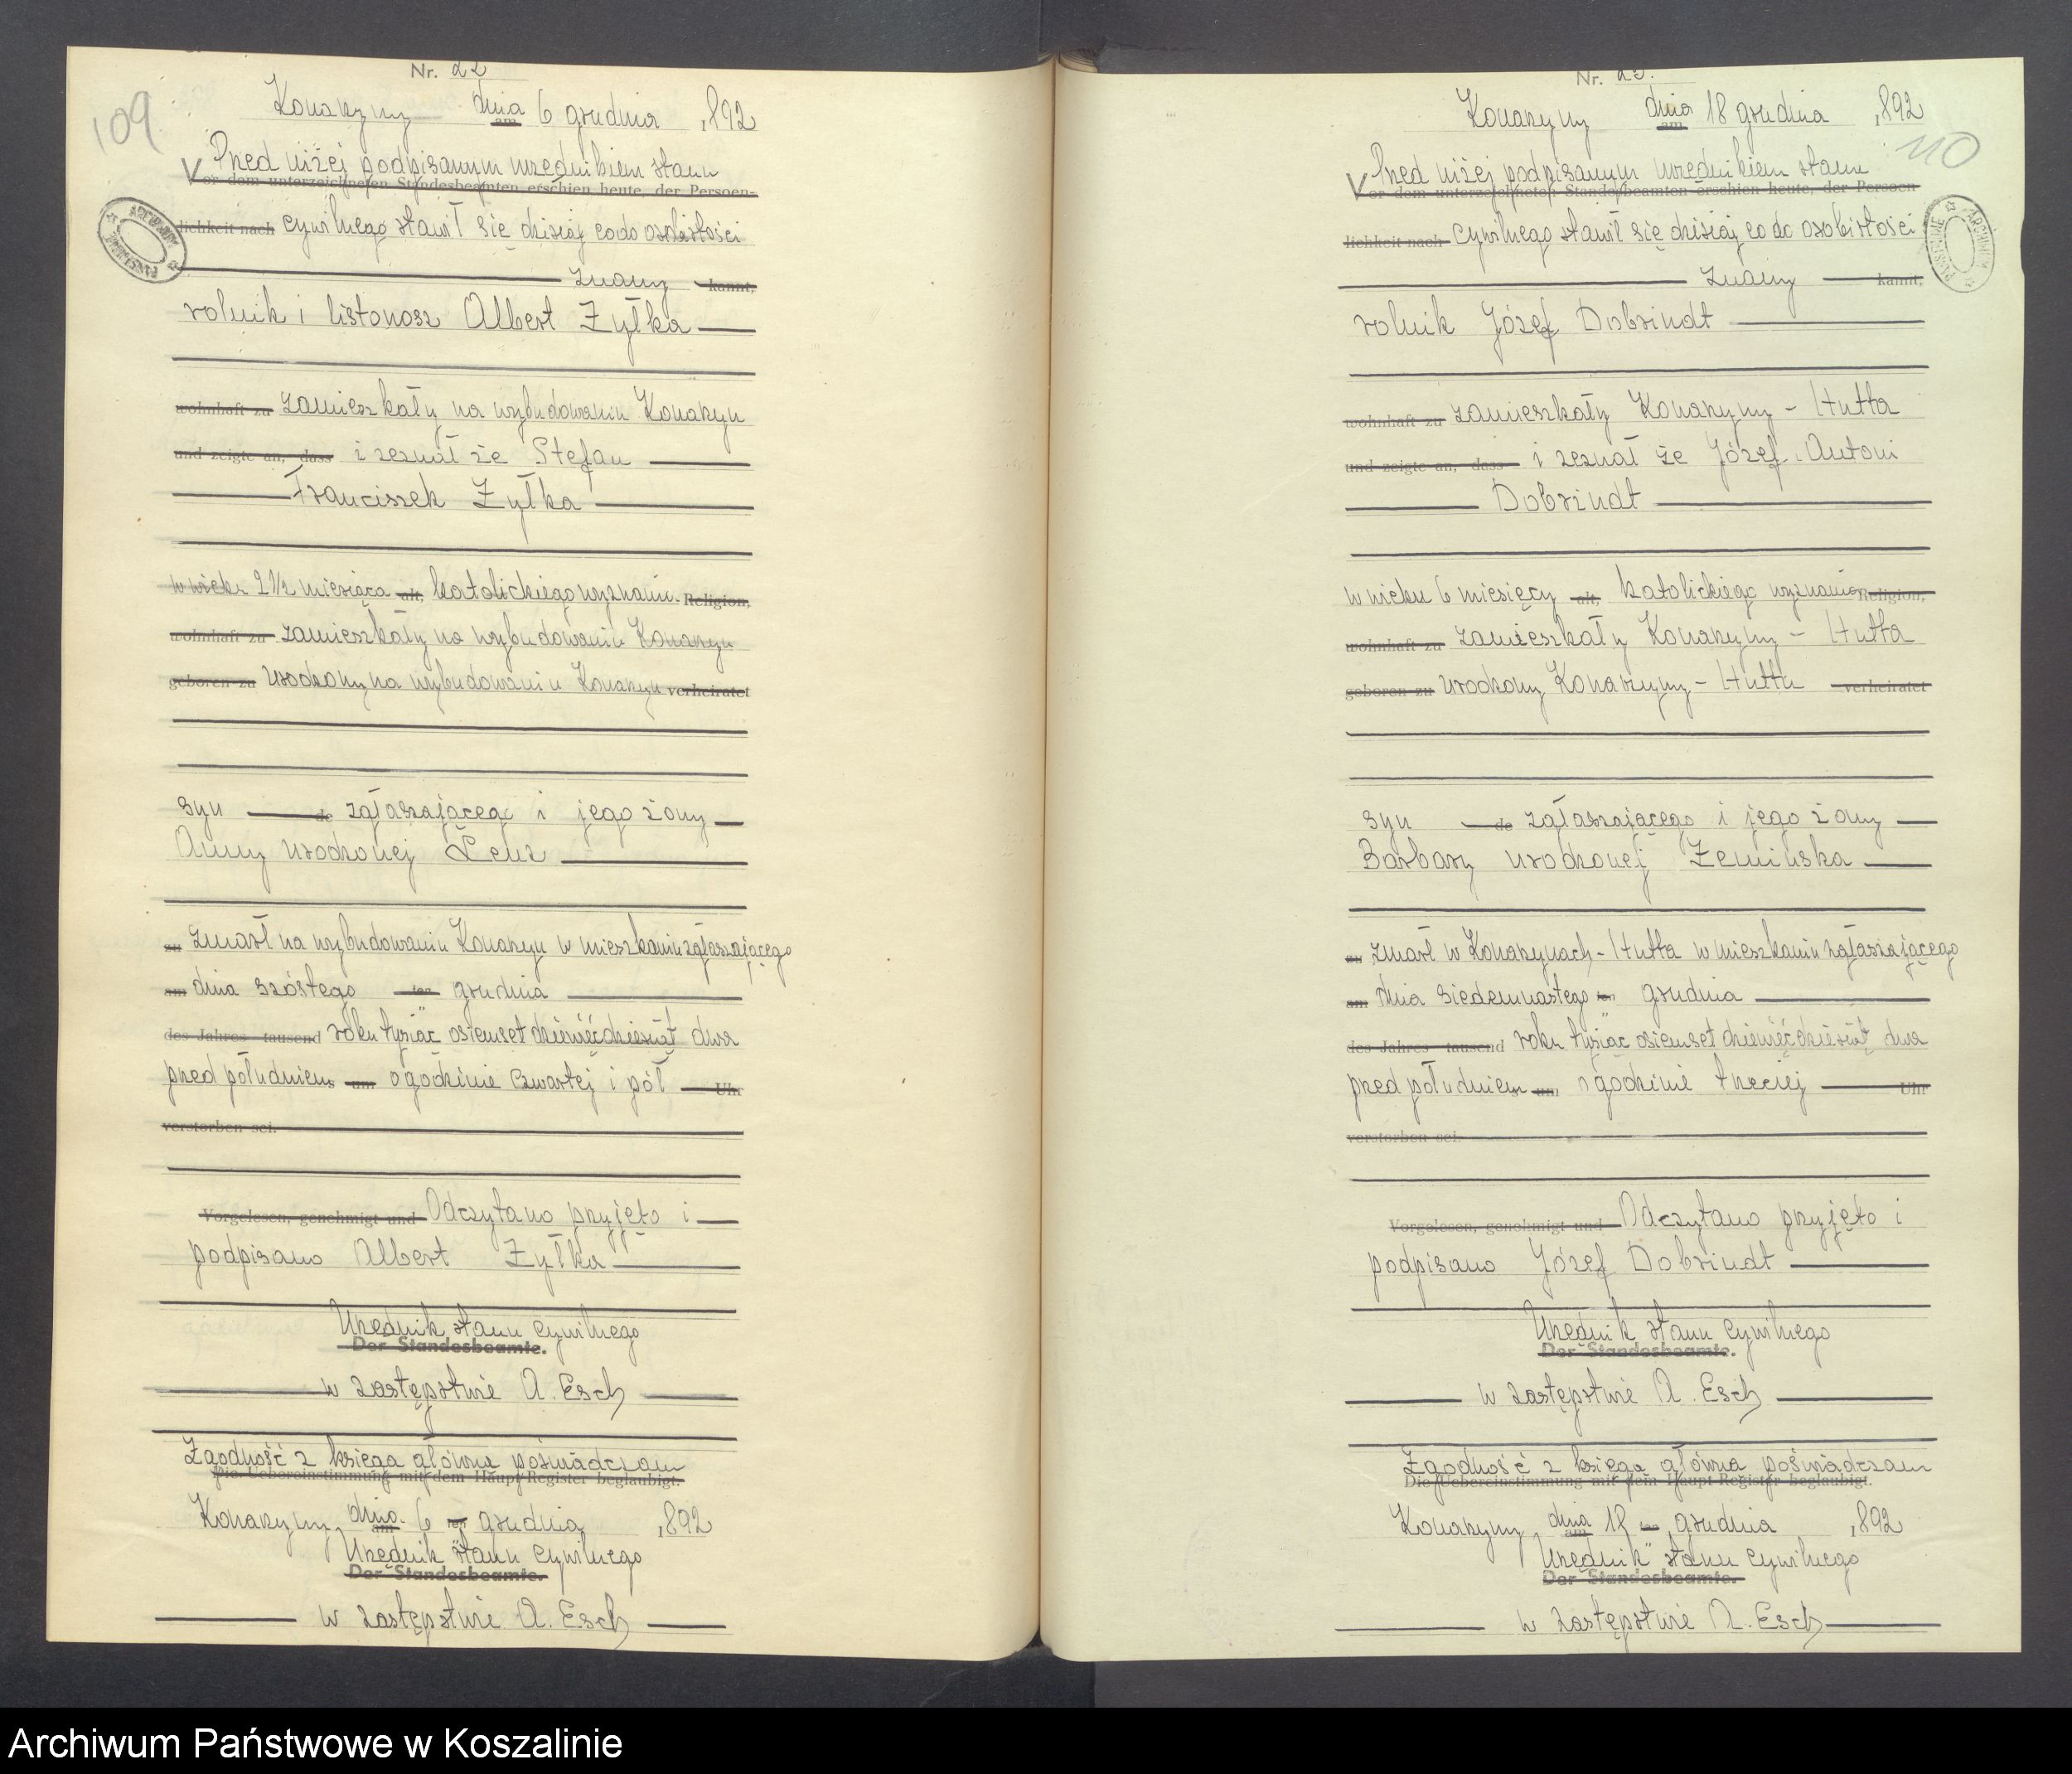 109
Nr. 22
Konarzyny dnia am 6 grudnia 1892
Przed niżej podpisanym urzędnikiem stanu
Vor dem unterzeichneten Standesbeamten erschien heute, der Persoen-
lichkeit nach cywilnego stawił się dzisiaj co do osobistości
znany kannt,
rolnik i listonosz Albert Żyłka
wohnhaft zu zamieszkały na wybudowaniu Konarzyn
und zeigte an, dass i zeznał że Stefan
Franciszek Żyłka
w wieku 2 1/2 miesiąca alt, katolickiego wyznania Religion,
wohnhaft zu zamieszkały na wybudowaniu Konarzyn
geboren zu urodzony na wybudowaniu Konarzyn verheiratet
syn de zgłaszającego i jego żony
Anny urodzonej Lenz
zu zmarł na wybudowaniu Konarzyn w mieszkaniu zgłaszającego
am dnia szóstego ten grudnia
des Jahres tausend roku tysiąc osiemset dziewięćdziesiąt dwa
przed południem um o godzinie czwartej i pół Uhr
verstorben sei.
Vorgelesen, genehmigt und Odczytano przyjęto i
podpisano Albert Żyłka
Urzędnik stanu cywilnego
Der Standesbeamte.
w zastępstwie A. Esch
Zgodność z księgą główną poświadczam
Die Uebereinstimmung mit dem Haupt-Register beglaubigt.
Konarzyny, dnia am 6 ten grudnia 1892
Urzędnik stanu cywilnego
Der Standesbeamte.
w zastępstwie A. Esch
110
Nr. 23.
Konarzyny dnia am 18 grudnia 1892
Przed niżej podpisanym urzędnikiem stanu
Vor dem unterzeichneten Standesbeamten erschien heute, der Persoen-
lichkeit nach cywilnego stawił się dzisiaj co do osobistości
znany kannt,
rolnik Józef Dobrindt
wohnhaft zu zamieszkały Konarzyny - Hutta
und zeigte an, dass i zeznał że Józef Antoni
Dobrindt
w wieku 6 miesięcy alt, katolickiego wyznania Religion,
wohnhaft zu zamieszkały Konarzyny - Hutta
geboren zu urodzony Konarzyny - Hutta verheiratet
syn de zgłaszającego i jego żony
Barbary urodzonej Żemińska
zu zmarł w Konarzynach - Hutta w mieszkaniu zgłaszającego
am dnia siedemnastego ten grudnia
des Jahres tausend roku tysiąc osiemset dziewięćdziesiąt dwa
przed południem um o godzinie trzeciej Uhr
verstorben sei.
Vorgelesen, genehmigt und Odczytano przyjęto i
podpisano Józef Dobrindt
Urzędnik stanu cywilnego
Der Standesbeamte.
w zastępstwie A. Esch
Zgodność z księgą główną poświadczam
Die Uebereinstimmung mit dem Haupt-Register beglaubigt.
Konarzyny, dnia am 18 ten grudnia 1892
Urzędnik stanu cywilnego
Der Standesbeamte.
w zastępstwie A. Esch
ARCHIWUM PAŃSTWOWE
ARCHIWUM PAŃSTWOWE
Archiwum Państwowe w Koszalinie